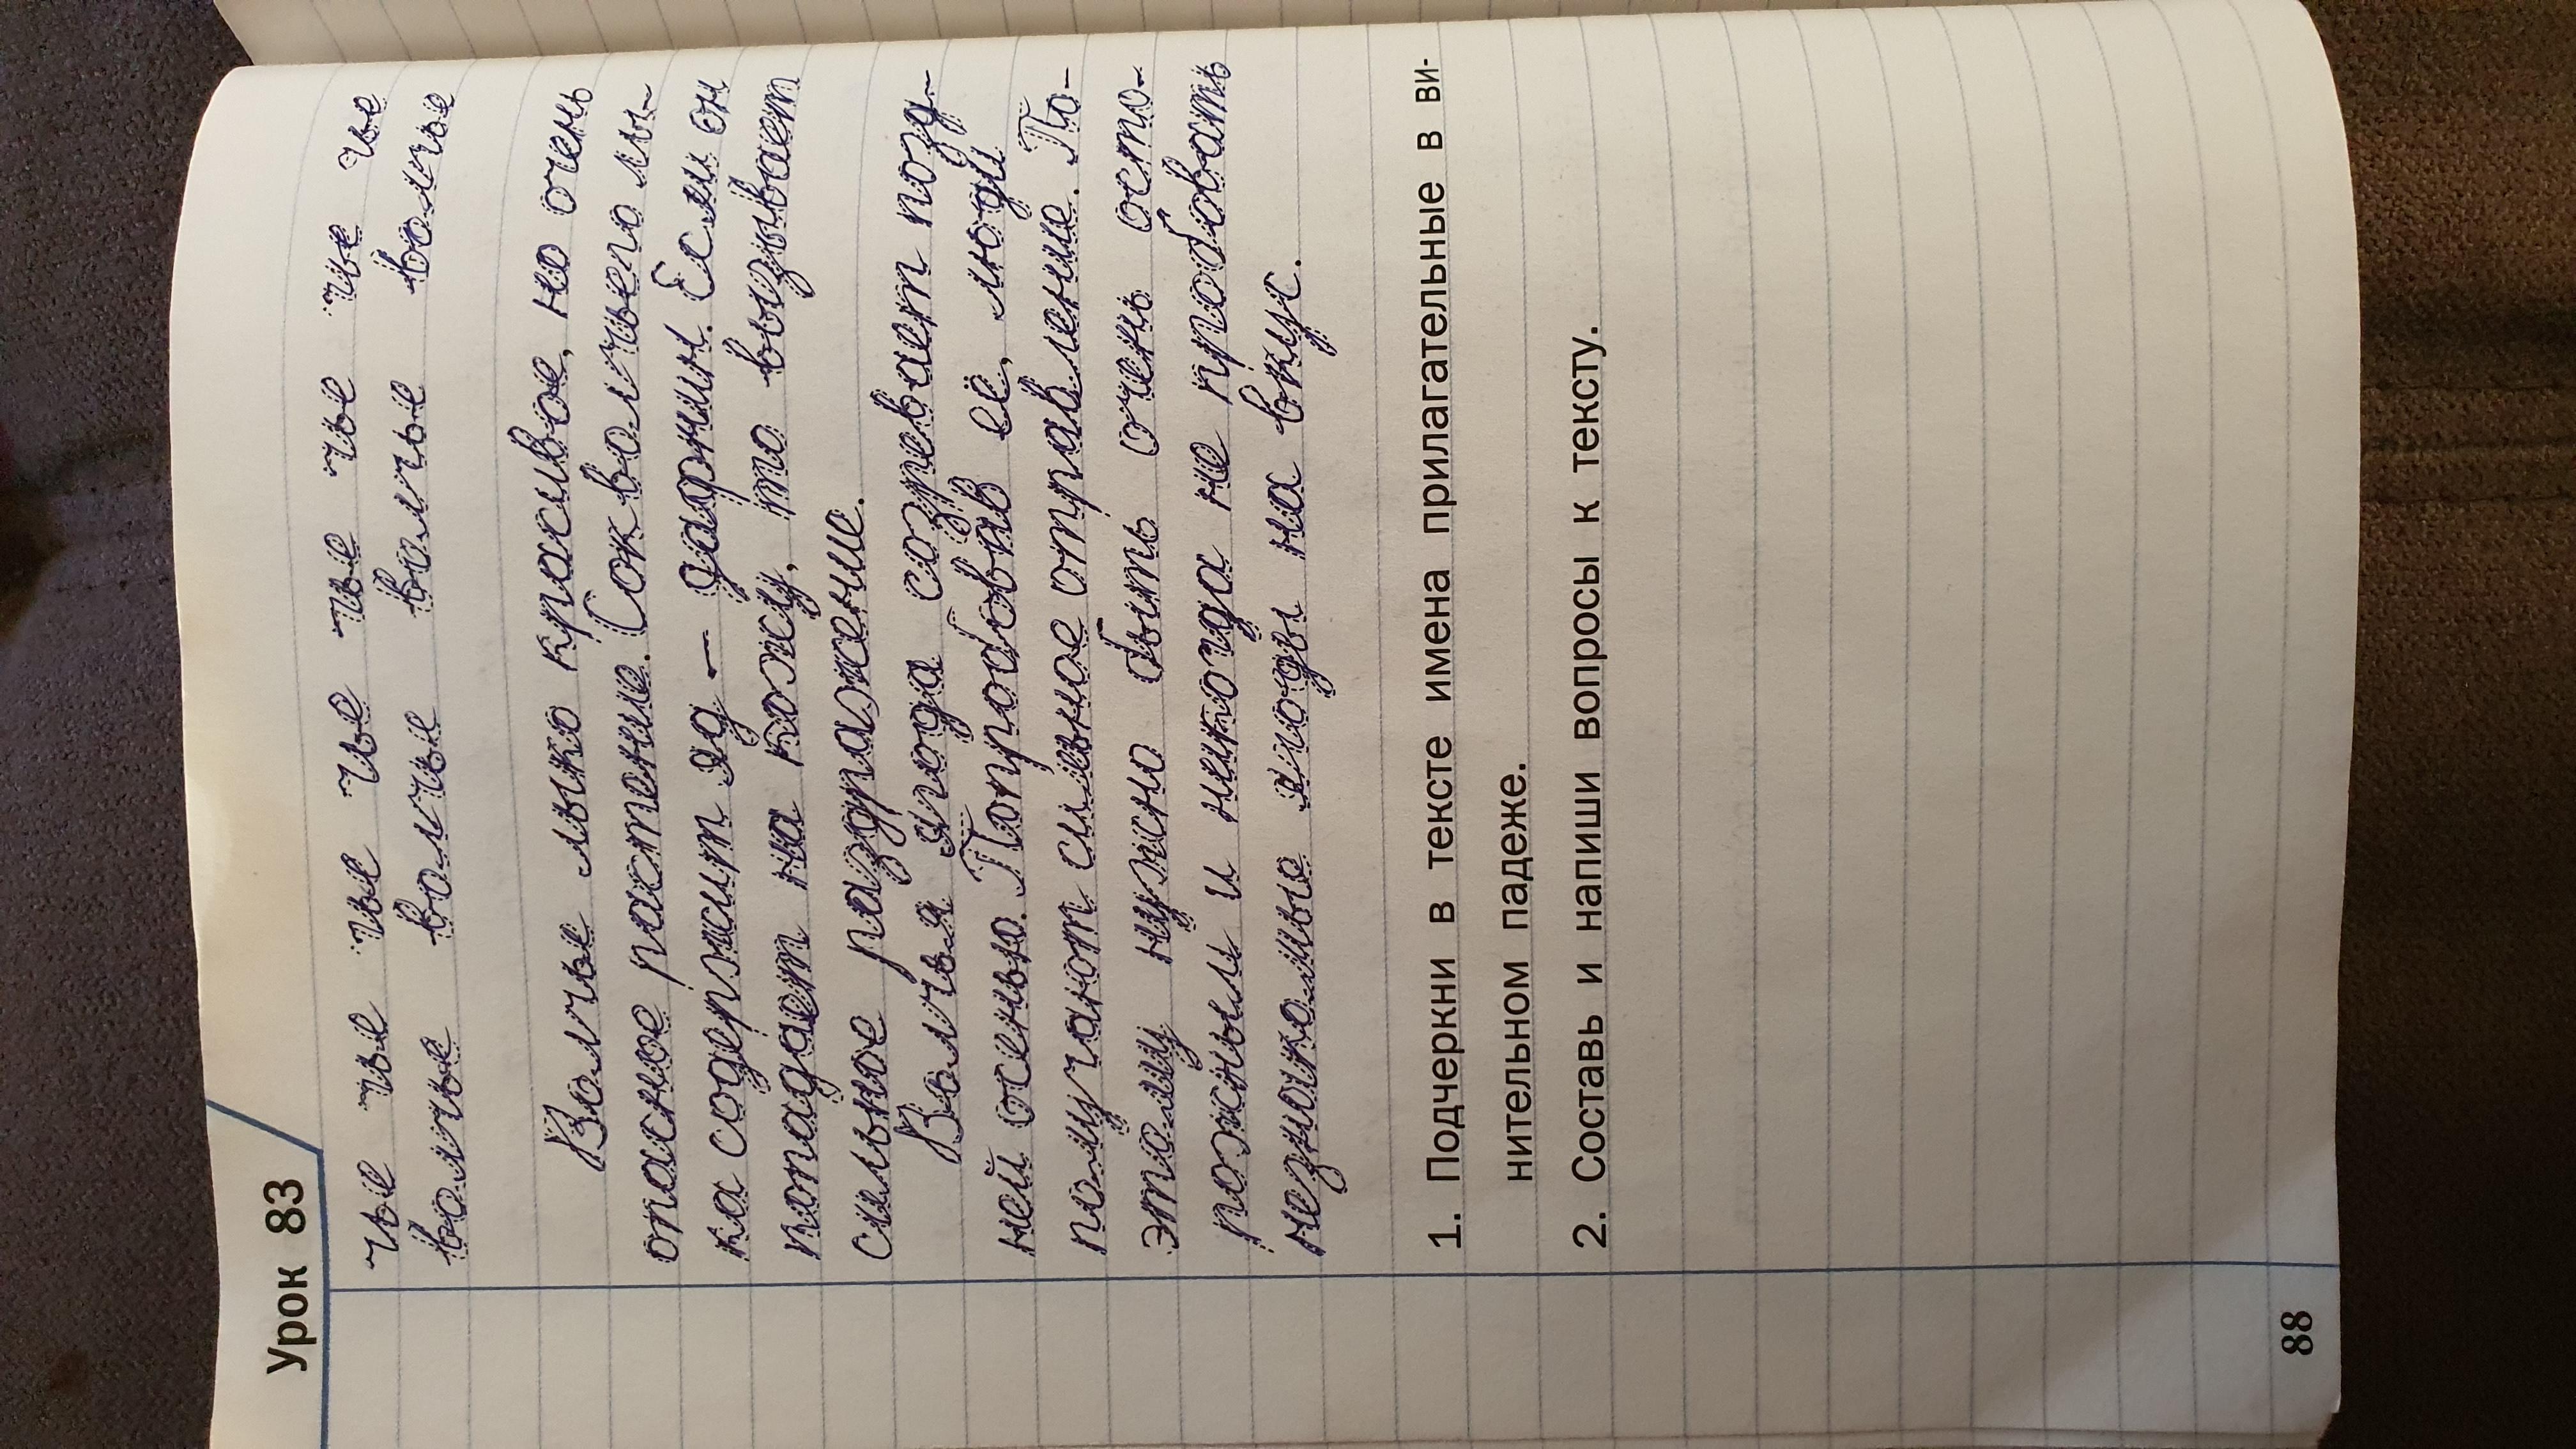 Урок 83
чье чье чье чье чье чье чье чье
волчье волчье волчье волчье волчье
Волчье лыко красивое, но очень
опасное растение. Сок волчьего лы-
ка содержит яд — дафнин. Если он
попадает на кожу, то вызывает
сильное раздражение.
Волчья ягода созревает позд-
ней осенью. Попробовав её, люди
получают сильное отравление. По-
этому нужно быть очень осто-
рожным и никогда не пробовать
незнакомые ягоды на вкус.
1. Подчеркни в тексте имена прилагательные в ви-
нительном падеже.
2. Составь и напиши вопросы к тексту.
88